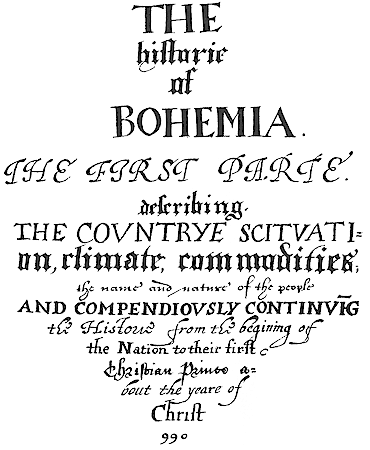 THE
historie
of
BOHEMIA.
THE FIRST PARTE.
describing.
THE COVNTRYE SCITVATI=
on, climate, commodities,
the name and nature of the people
AND COMPENDIOVSLY CONTINVĪG
the Historie from the begining of
the Nation to their first
Christian Prince a=
bout the yeare of
Christ
990